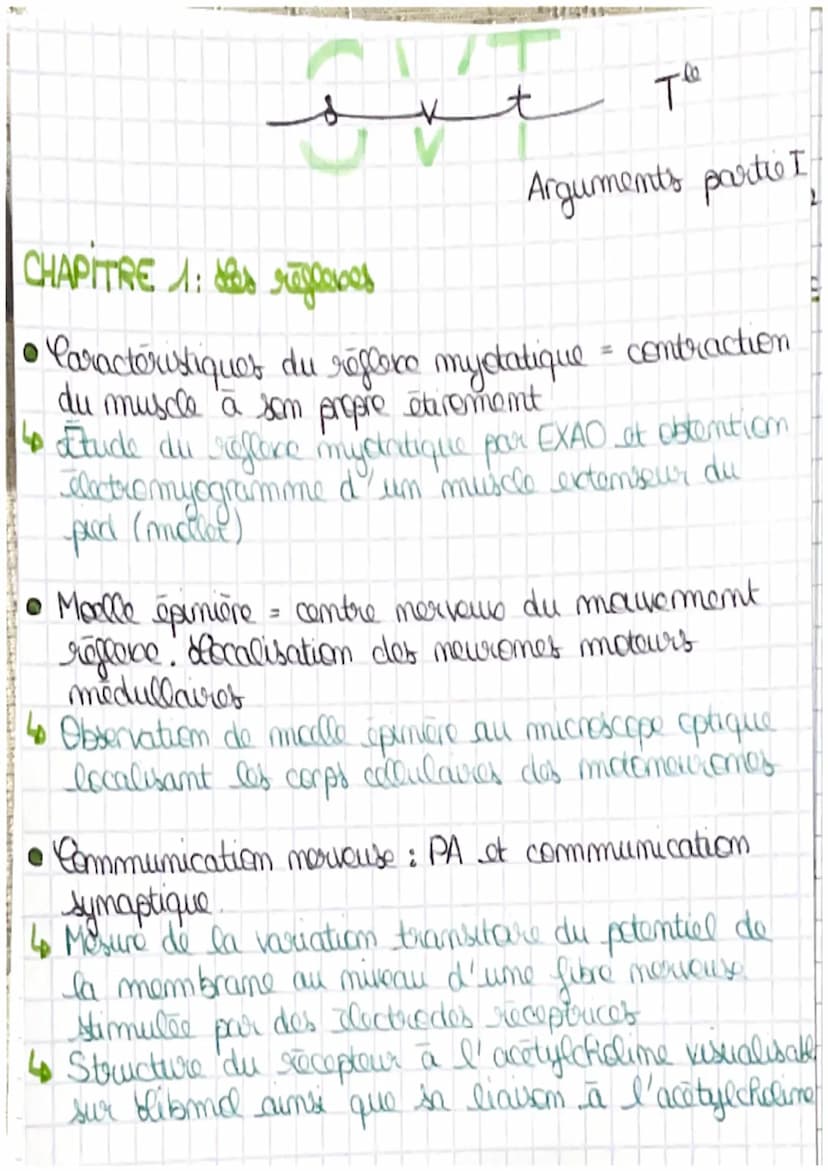 SVT
svt Tle
Arguments partie I
CHAPITRE 1: Les réflexes
• Caractéristiques du réflexe myotatique = contraction
du muscle à son propre étirement
↳ Étude du réflexe myotatique par EXAO et obtention
électromyogramme d'un muscle extenseur du
pied (mollet)
• Moelle épinière = centre nerveux du mouvement
réflexe. Localisation des neurones moteurs
médullaires
↳ Observation de moelle épinière au microscope optique
localisant les corps cellulaires des motoneurones
• Communication nerveuse : PA et communication
synaptique.
↳ Mesure de la variation transitoire du potentiel de
la membrane au niveau d'une fibre nerveuse
stimulée par des électrodes réceptrices
↳ Structure du récepteur à l'acétylcholine visualisable
sur libmol ainsi que sa liaison à l'acétylcholine